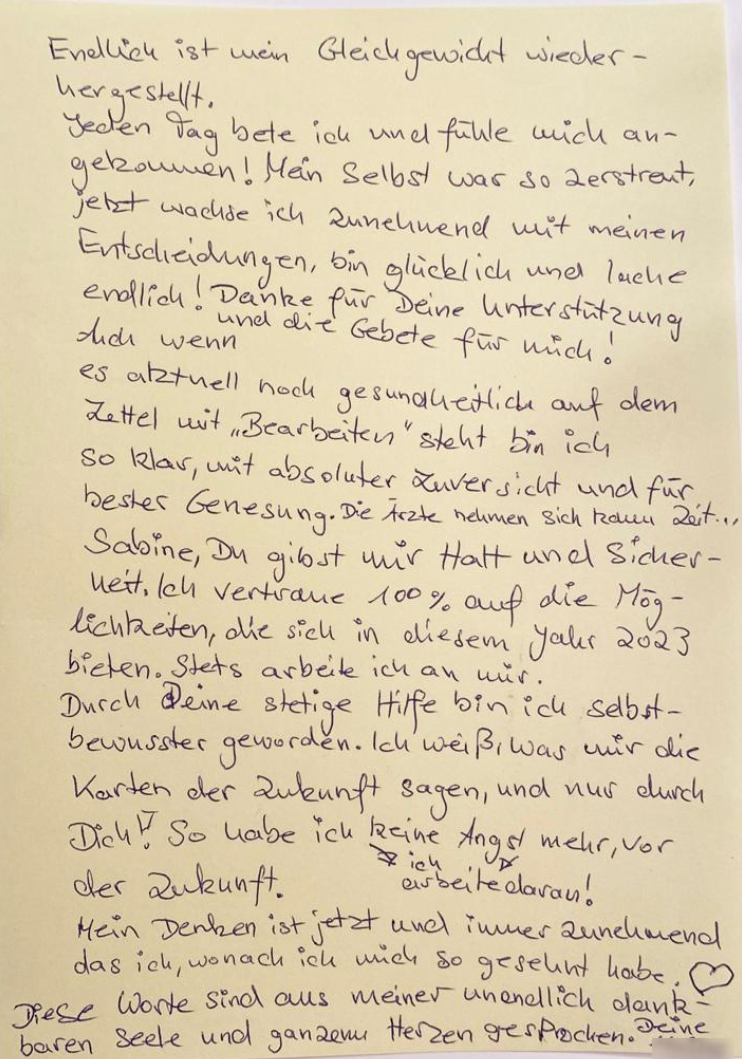 Endlich ist mein Gleichgewicht wieder-
hergestellt.
Jeden Tag bete ich und fühle mich an-
gekommen! Mein Selbst war so zerstreut,
jetzt wachse ich zunehmend mit meinen
Entscheidungen, bin glücklich und lache
endlich! Danke für Deine Unterstützung
und die Gebete für mich!
Auch wenn
es aktuell noch gesundheitlich auf dem
Zettel mit „Bearbeiten“ steht bin ich
so klar, mit absoluter Zuversicht und für
bester Genesung. Die Ärzte nehmen sich kaum Zeit...
Sabine, Du gibst mir Halt und Sicher-
heit. Ich vertraue 100% auf die Mög-
lichkeiten, die sich in diesem Jahr 2023
bieten. Stets arbeite ich an mir.
Durch Deine stetige Hilfe bin ich selbst-
bewusster geworden. Ich weiß, was mir die
Karten der Zukunft sagen, und nur durch
Dich! So habe ich keine Angst mehr, vor
der Zukunft. ich arbeite daran!
Mein Denken ist jetzt und immer zunehmend
das ich, wonach ich mich so gesehnt habe.
Diese Worte sind aus meiner unendlich dank-
baren Seele und ganzem Herzen gesprochen. Deine